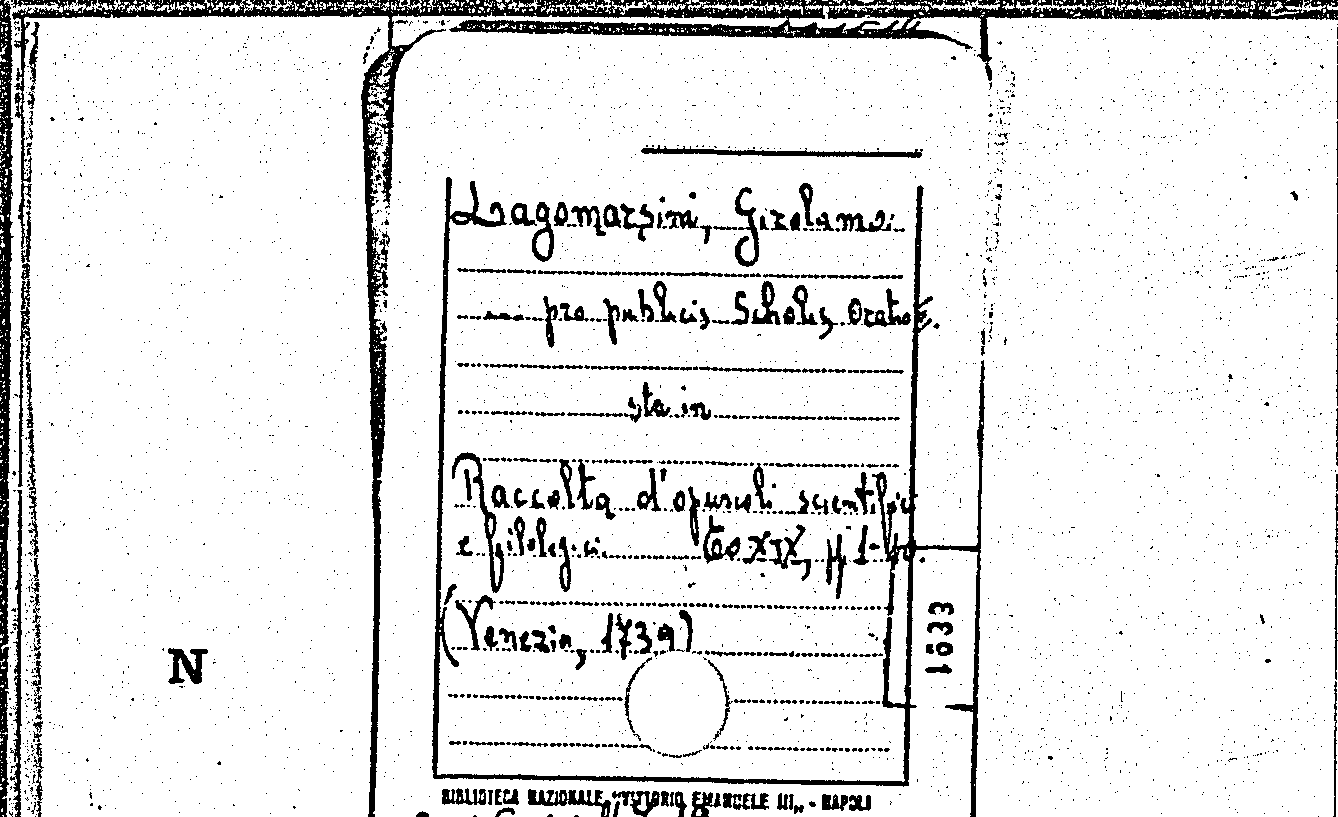 Lagomarsini, Girolamo.
pro publicis Scholis, Oratio
sta in
Raccolta d'opuscoli scientifici
e filologici. To XIX, pp 1-40.
(Venezia, 1739)
1633
N
BIBLIOTECA NAZIONALE "VITTORIO EMANUELE III" - NAPOLI